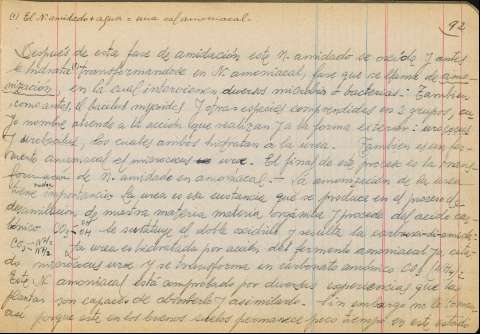 (1) El N. amidado + agua = una sal amoniacal.
92
Después de esta fase de amidación este N. amidado se oxida y antes
se hidrata (1) transformandose en N. amoniacal, fase que se llama de amo-
nización, en la cual intervienen diversos microbios o bacterias: Tambien
como antes el bacilus micoides y otras especies comprendidas en 2 grupos, cu
yo nombre atiende a la acción que realizan y a la forma exterior: uroccocus
y urobacilus, los cuales ambos hidratan a la urea. Tambien es un fer-
mento amoniacal el micrococus urea. El final de este proceso es la trans-
formación de N. amidado en amoniacal.— La amonización de la urea
tiene mucha importancia. La urea es esa sustancia que se produce en el proceso de
desasimilación de nuestra materia materia orgánica y procede del acido car-
bónico CO< OH OH se sustituye el doble oxidrilo y resulta la
CO< NH2 NH2 La urea es hidratada por acción del fermento amoniacal ya cita-
do micrococus urea y se transforma en carbonato amónico CO3 (NH4)2
Este N. amoniacal está comprobado por diversas experiencias que las
plantas son capaces de absorberlo y asimilarlo. Sin embargo no lo toman
asi porque este en los buenos suelos permanece poco tiempo en este estado